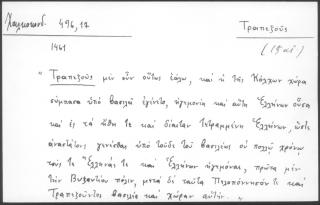 Χαλκοκονδ. 496,17
Τραπεζοῦς
1461
" Τραπεζοῦς μὲν οὖν οὕτως ἑάλω, καὶ ἡ τῆς Κόλχων χώρα
σύμπασα ὑπὸ βασιλεῖ ἐγένετο, ἡγεμονία καὶ αὕτη Ἑλλήνων οὖσα
καὶ ἐς τὰ ἤθη τε καὶ δίαιταν τετραμμένη Ἑλλήνων, ὥστε
ἀναστάτους γενέσθαι ὑπὸ τοῦδε τοῦ βασιλέως οὐ πολλῷ χρόνῳ
τούς τε Ἕλληνάς τε καὶ Ἑλλήνων ἡγεμόνας, πρῶτα μὲν
τὴν Βυζαντίου πόλιν, μετὰ δὲ ταῦτα Πελοπόννησόν τε καὶ
Τραπεζοῦντος βασιλέα καὶ χώραν αὐτήν. "